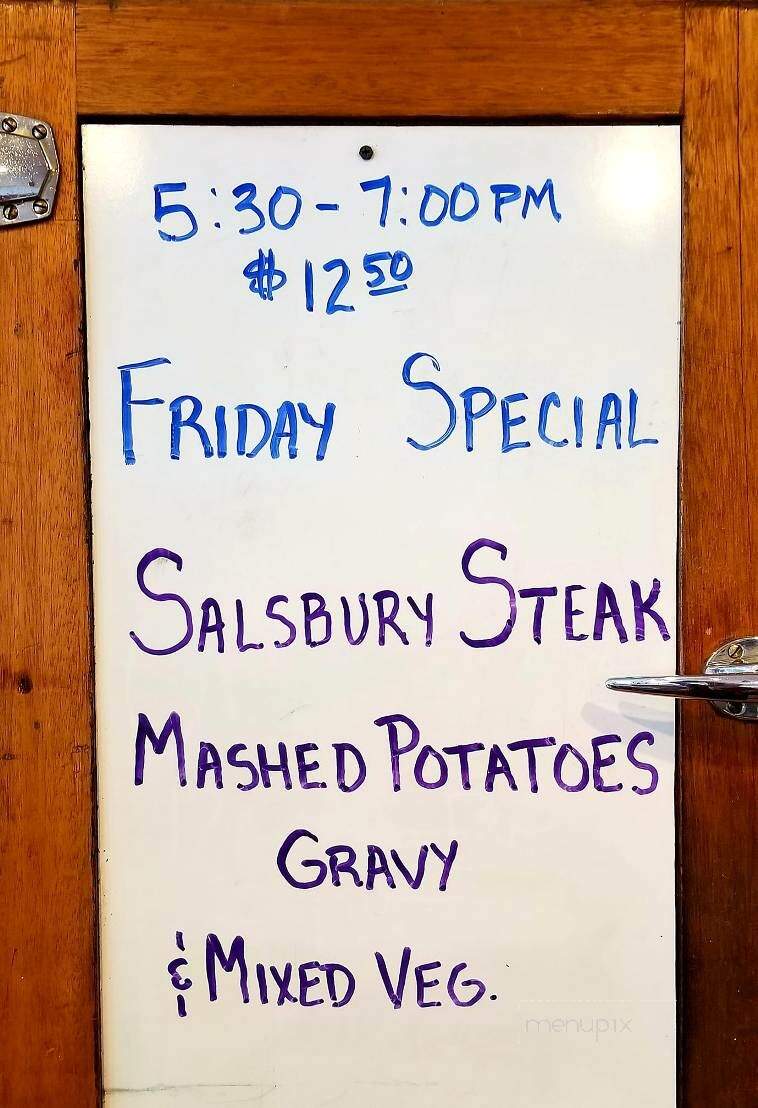 5:30 - 7:00 PM
$12 50
FRIDAY SPECIAL
SALSBURY STEAK
MASHED POTATOES
GRAVY
& MIXED VEG.
menupix